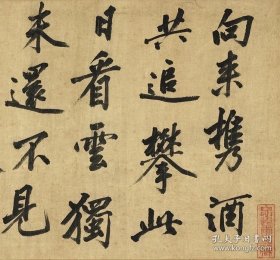 向来携酒
共追攀此
日看雲獨
未還不見
孔夫子旧书网